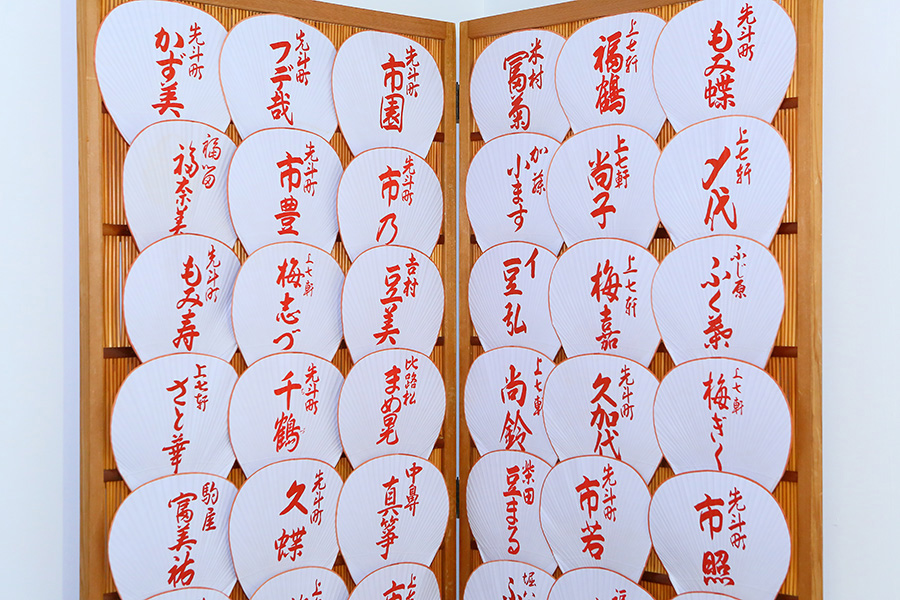 先斗町
もみ蝶
上七軒
福鶴
米村
冨菊
先斗町
市園
先斗町
フデ哉
先斗町
かず美
上七軒
〆代
上七軒
尚子
加藤
小ます
先斗町
市乃
先斗町
市豊
福嶹
福奈美
ふじ原
上七軒
梅嘉
イ
豆弘
吉村
豆美
上七軒
梅志づ
先斗町
もみ寿
上七軒
梅ぎく
先斗町
久加代
上七軒
尚鈴
比路松
まめ晃
先斗町
千鶴
上七軒
さと華
先斗町
市照
先斗町
市若
柴田
豆まる
中鼻
真箏
先斗町
久蝶
駒屋
冨美祐